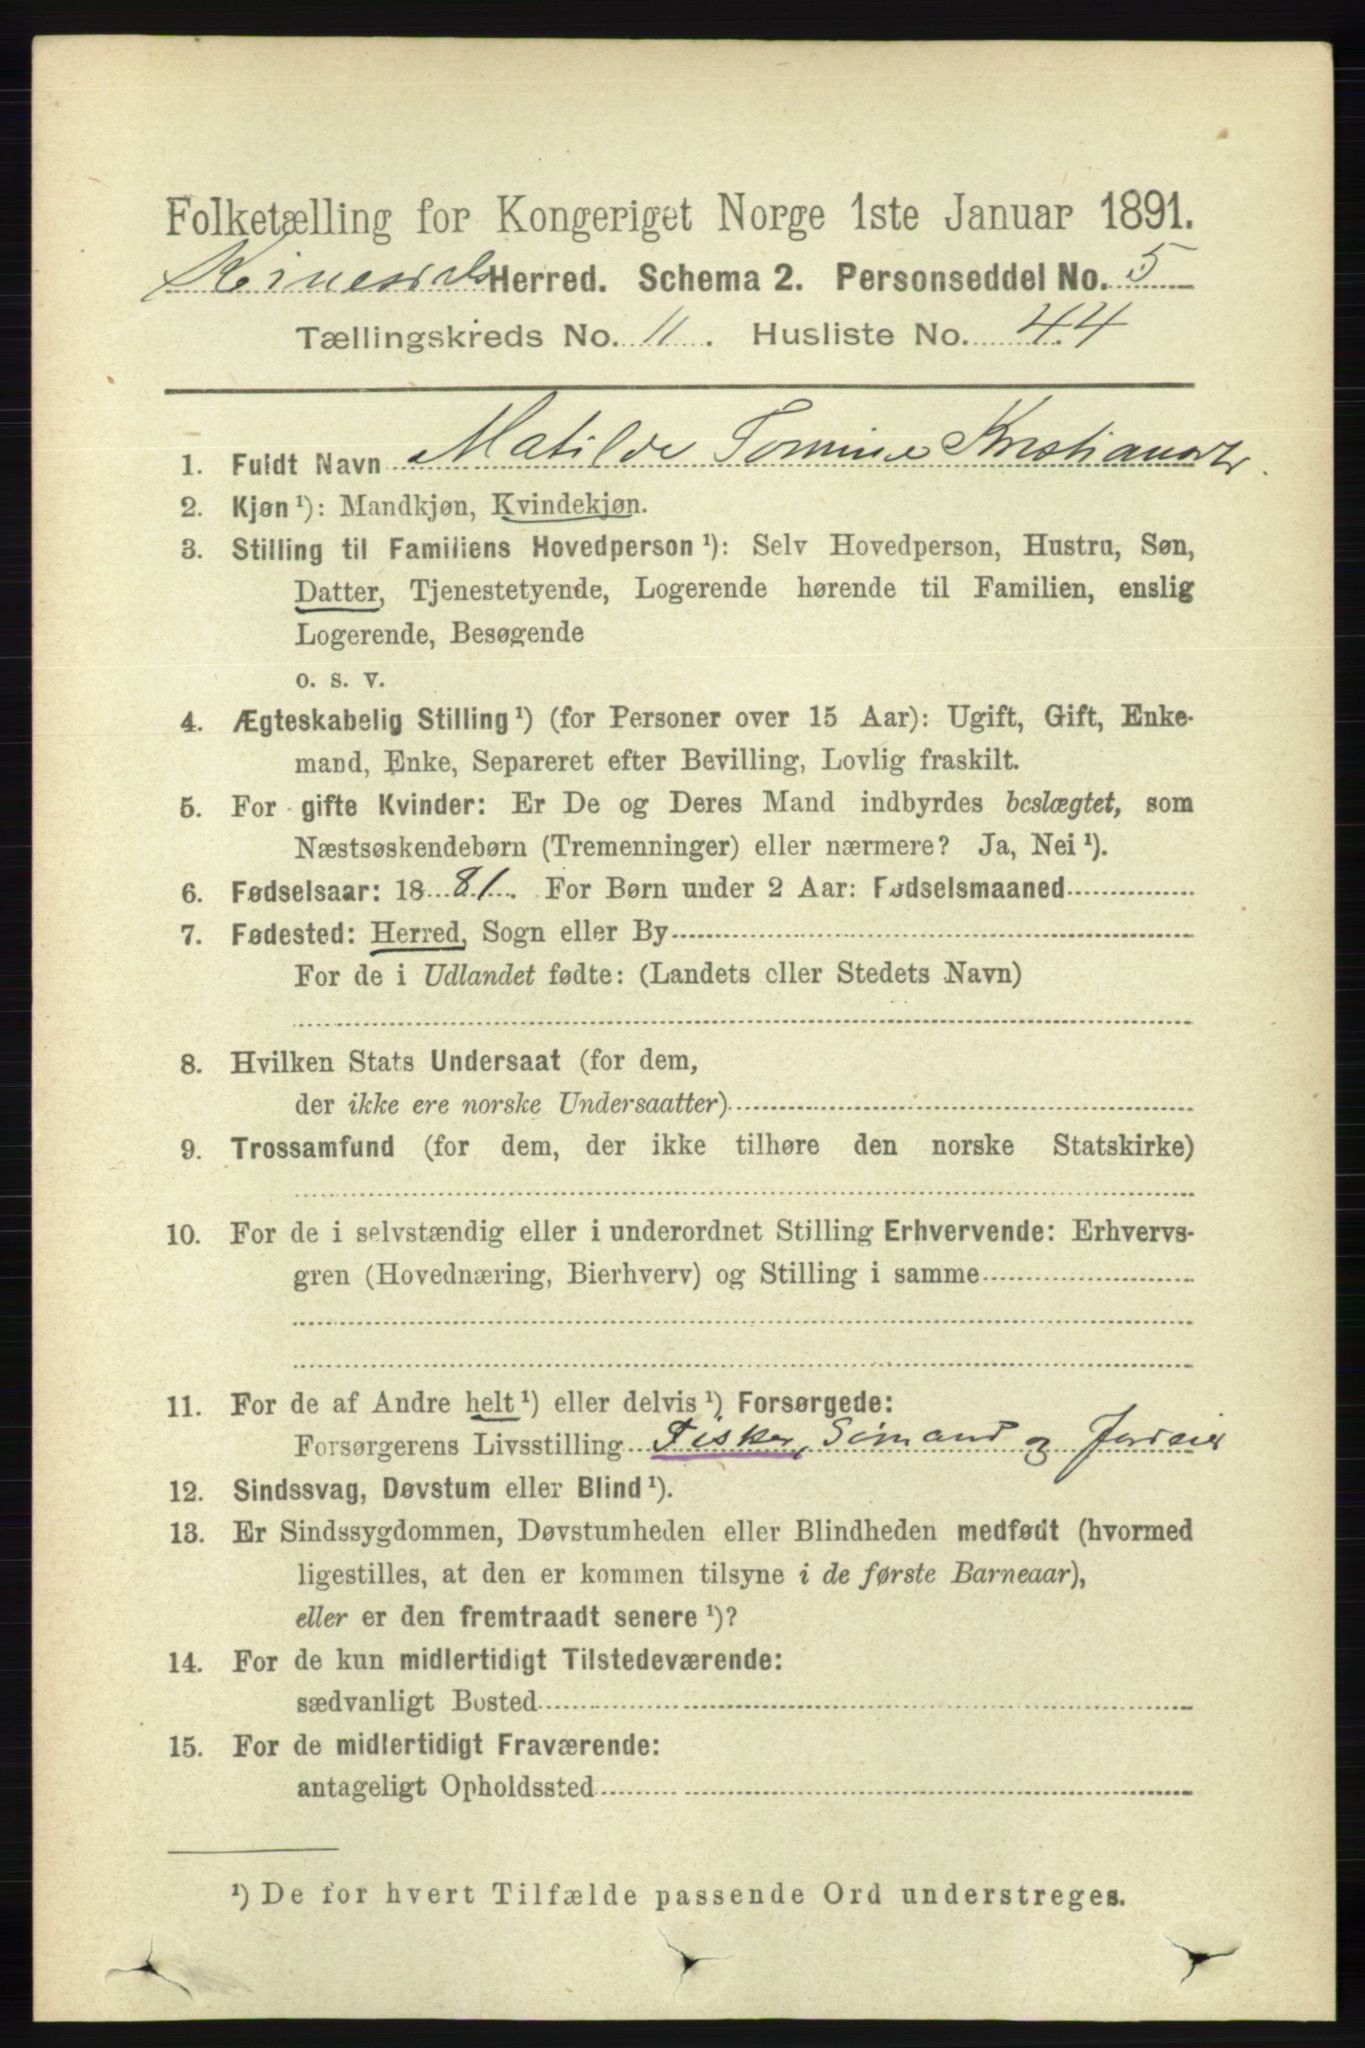 Folketælling for Kongeriget Norge 1ste Januar 1891.
Herred. Schema 2. Personseddel No. 5
Tællingskreds No. 11. Husliste No. 44
1. Fuldt Navn Matilde Tomine Kristiansdtr.
2. Kjøn ¹): Mandkjøn, Kvindekjøn.
3. Stilling til Familiens Hovedperson ¹): Selv Hovedperson, Hustru, Søn,
Datter, Tjenestetyende, Logerende hørende til Familien, enslig
Logerende, Besøgende
o. s. v.
4. Ægteskabelig Stilling ¹) (for Personer over 15 Aar): Ugift, Gift, Enke-
mand, Enke, Separeret efter Bevilling, Lovlig fraskilt.
5. For gifte Kvinder: Er De og Deres Mand indbyrdes beslægtet, som
Næstsøskendebørn (Tremenninger) eller nærmere? Ja, Nei ¹).
6. Fødselsaar: 1881. For Børn under 2 Aar: Fødselsmaaned
7. Fødested: Herred, Sogn eller By
For de i Udlandet fødte: (Landets eller Stedets Navn)
8. Hvilken Stats Undersaat (for dem,
der ikke ere norske Undersaatter)
9. Trossamfund (for dem, der ikke tilhøre den norske Statskirke)
10. For de i selvstændig eller i underordnet Stilling Erhvervende: Erhvervs-
gren (Hovednæring, Bierhverv) og Stilling i samme
11. For de af Andre helt ¹) eller delvis ¹) Forsørgede:
Forsørgerens Livsstilling Fisker, Sømand og Jordeier
12. Sindssvag, Døvstum eller Blind ¹).
13. Er Sindssygdommen, Døvstumheden eller Blindheden medfødt (hvormed
ligestilles, at den er kommen tilsyne i de første Barneaar),
eller er den fremtraadt senere ¹)?
14. For de kun midlertidigt Tilstedeværende:
sædvanligt Bosted
15. For de midlertidigt Fraværende:
antageligt Opholdssted
¹) De for hvert Tilfælde passende Ord understreges.